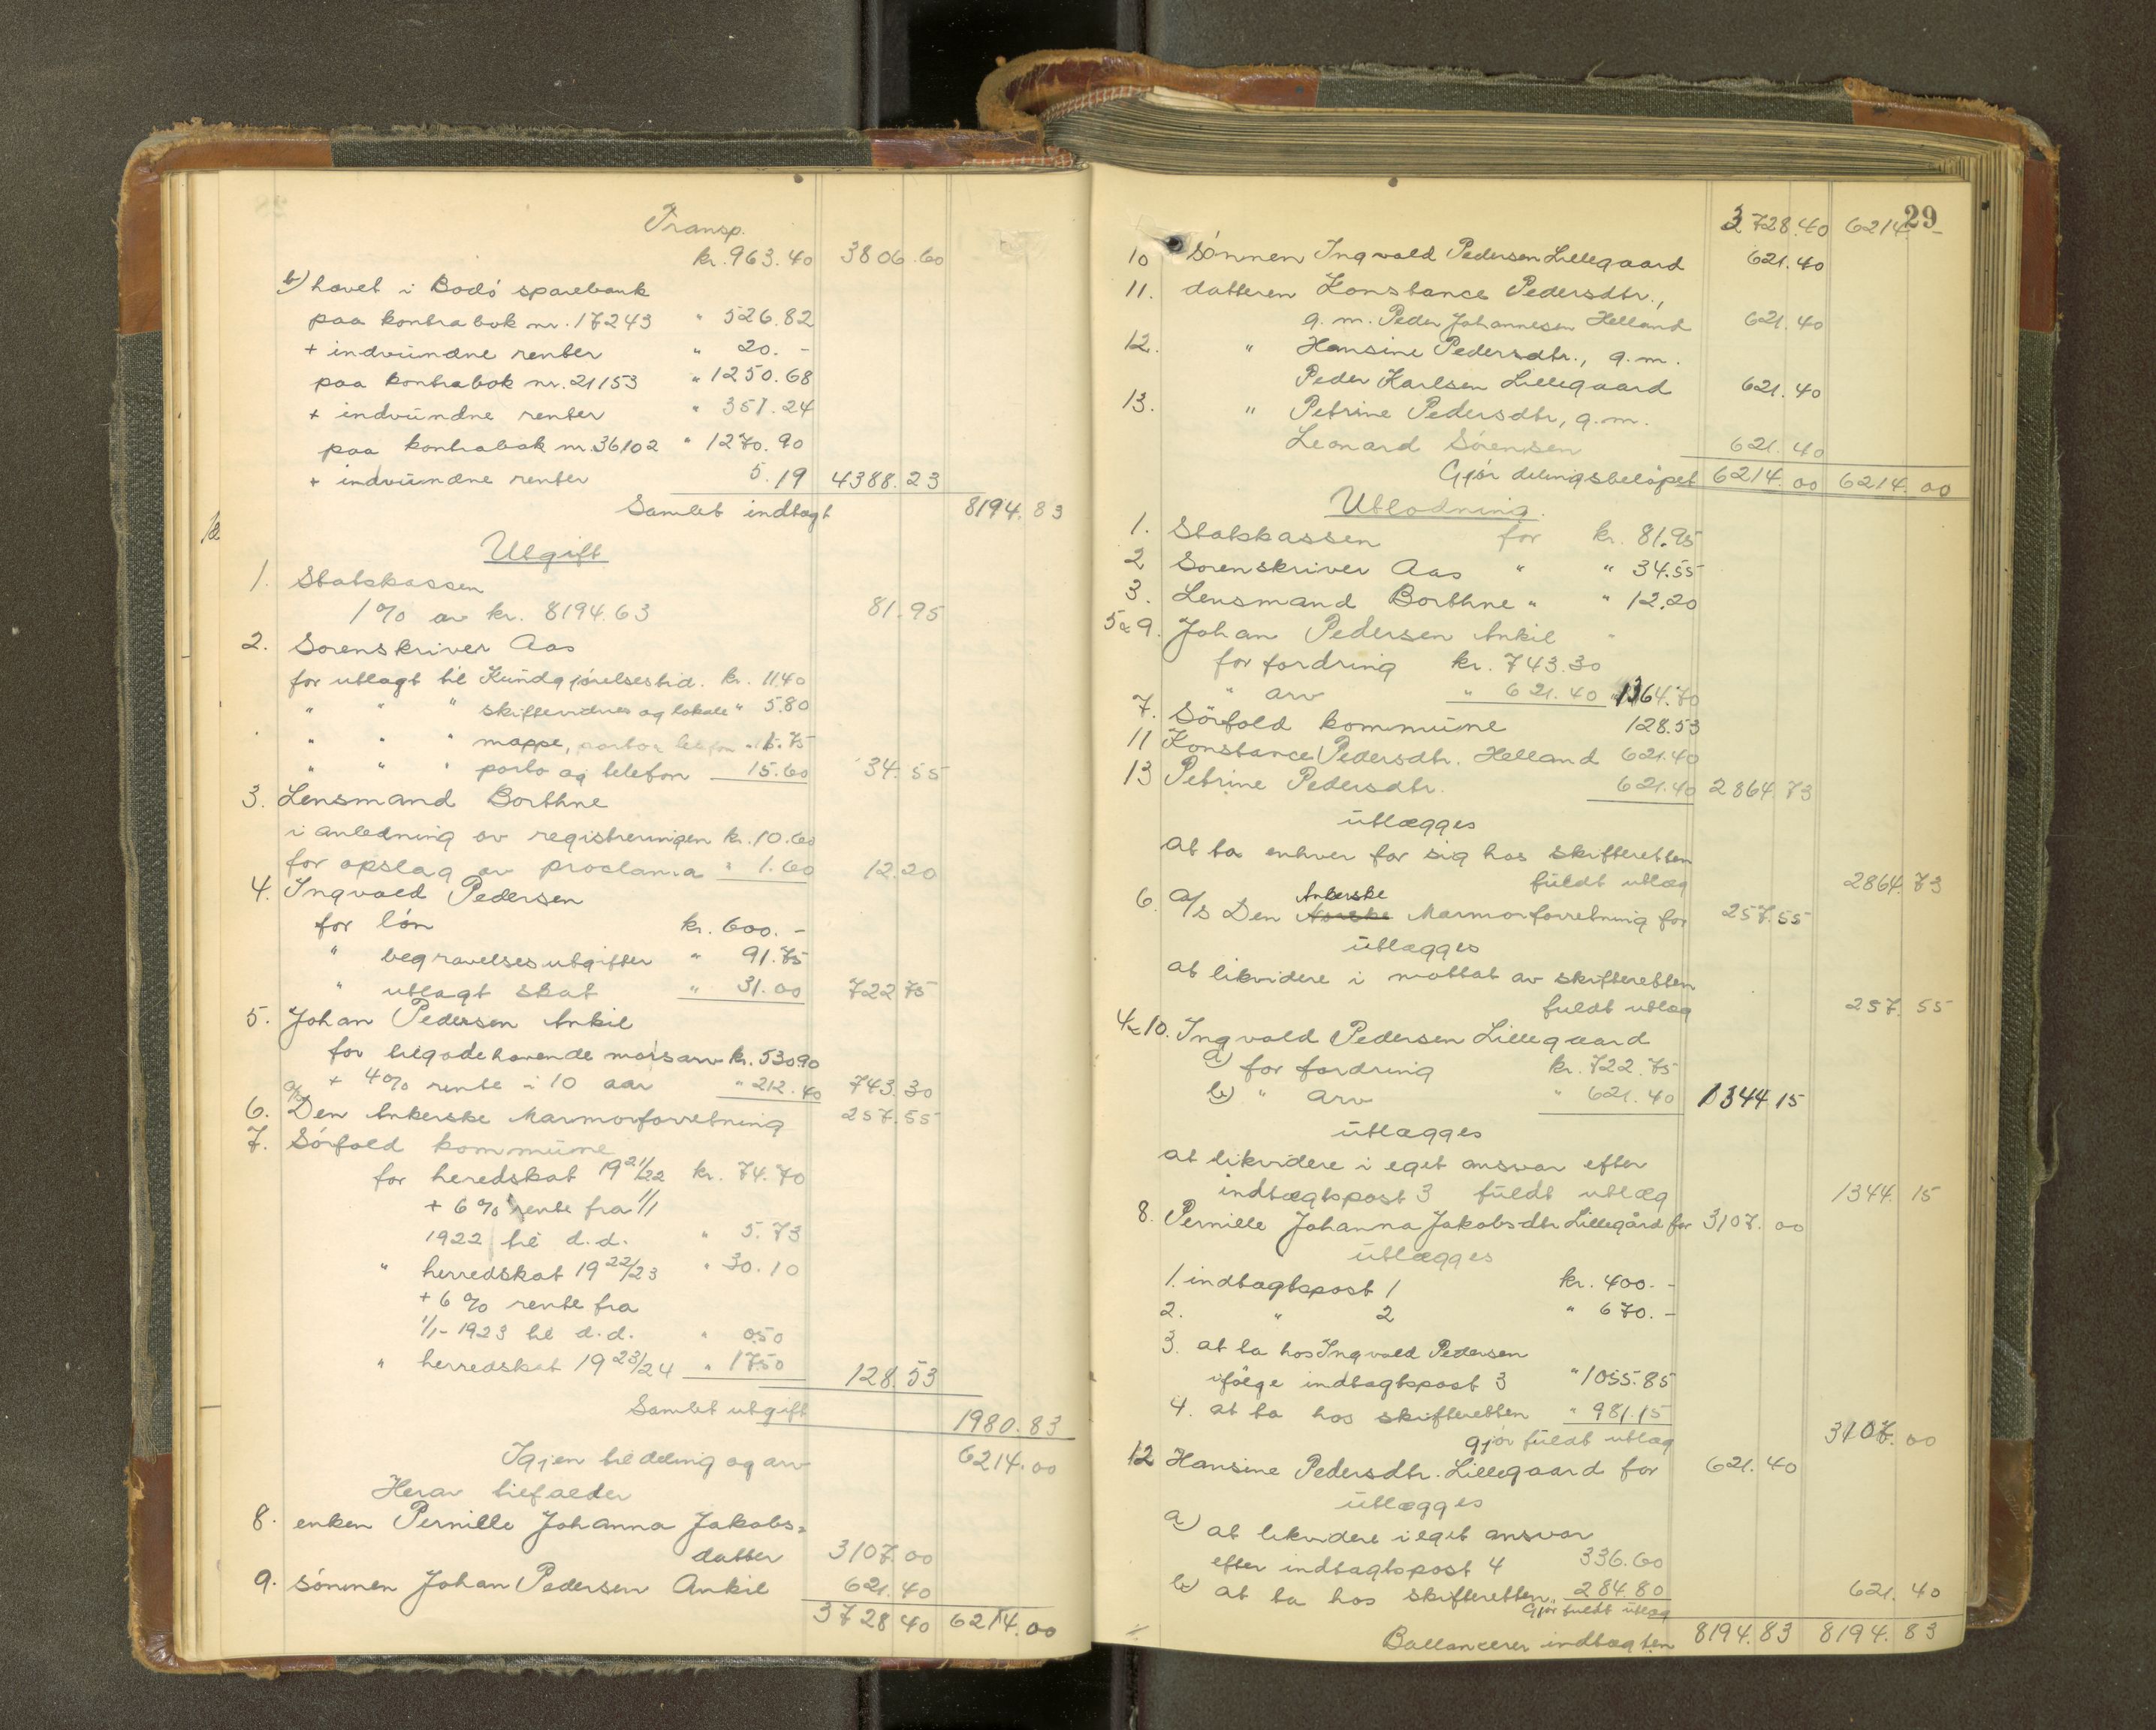 Transp.
kr. 963.40 3806.60
b) hævet i Bodö sparebank
paa kontrabok nr. 17243 " 526.82
+ indvundne renter " 20.-
paa kontrabok nr. 21153 " 1250.68
+ indvundne renter " 351.24
paa kontrabok nr. 36102 " 1270.90
+ indvundne renter 5.19 4388.23
Samlet indtægt 8194.83
Utgift
1. Statskassen
1% av kr. 8194.63 81.95
2. Sorenskriver Aas
for utlagt til Kundgjörelsestid. kr. 11.40
" " " skiftevidner og lokale " 5.80
" " " mappe, porto & telefon " 1.75
" " " porto og telefon 15.60 34.55
3. Lensmand Borthne
i anledning av registreringen kr. 10.60
for opslag av proclama " 1.60 12.20
4. Ingvald Pedersen
for lön kr. 600.-
" begravelsesutgifter " 91.75
" utlagt skat " 31.00 722.75
5. Johan Pedersen Ankil
for tilgodehavende morsarv kr. 530.90
+ 4% rente i 10 aar " 212.40 743.30
6. A/S Den Ankerske Marmorforretning 257.55
7. Sörfold kommune
for heredskat 1921/22 kr. 74.70
+ 6% rente fra 1/1
1922 til d.d. " 5.73
" herredskat 1922/23 " 30.10
+ 6% rente fra
1/1-1923 til d.d. " 0.50
" herredskat 1923/24 " 17.50 128.53
Samlet utgift 1980.83
Igjen til deling og arv 6214.00
Herav tilfalder
8. enken Pernille Johanna Jakobs-
datter 3107.00
9. sönnen Johan Pedersen Ankil 621.40
3728.40 6214.00
29
3728.40 6214.-
10 sönnen Ingvald Pedersen Lillegaard 621.40
11. datteren Konstance Pedersdtr.,
g. m. Peder Johannesen Helland 621.40
12. " Hansine Pedersdtr., g.m.
Peder Karlsen Lillegaard 621.40
13. " Petrine Pedersdtr, g.m.
Leonard Sörensen 621.40
Gjör delingsbelöpet 6214.00 6214.00
Utlodning.
1. Statskassen for kr. 81.95
2 Sorenskriver Aas " " 34.55
3. Lensmand Borthne " " 12.20
5 & 9. Johan Pedersen Ankil "
for fordring kr. 743.30
" arv " 621.40 " 1364.70
7. Sörfold kommune 128.53
11 Konstance Pedersdtr. Helland 621.40
13 Petrine Pedersdtr. 621.40 2864.73
utlægges
at ta enhver for sig hos skifteretten
fuldt utlæg 2864.73
6. A/S Den Norske Ankerske Marmorforretning for 257.55
utlægges
at likvidere i mottat av skifteretten
fuldt utlæg 257.55
4 & 10. Ingvald Pedersen Lillegaard
a) for fordring kr. 722.75
b) " arv " 621.40 1344.15
utlægges
at likvidere i eget ansvar efter
indtægtspost 3 fuldt utlæg 1344.15
8. Pernille Johanna Jakobsdtr Lillegård for 3107.00
utlægges
1. indtægtspost 1 kr. 400.-
2. " 2 " 670.-
3. at ta hos Ingvald Pedersen
ifölge indtægtspost 3 " 1055.85
4. at ta hos skifteretten " 981.15
gjör fuldt utlæg 3107.00
12 Hansine Pedersdtr. Lillegaard for 621.40
utlægges
a) at likvidere i eget ansvar
efter indtægtspost 4 336.60
b) at ta hos skifteretten " 284.80
gjör fuldt utlæg 621.40
Ballancerer indtægten 8194.83 8194.83